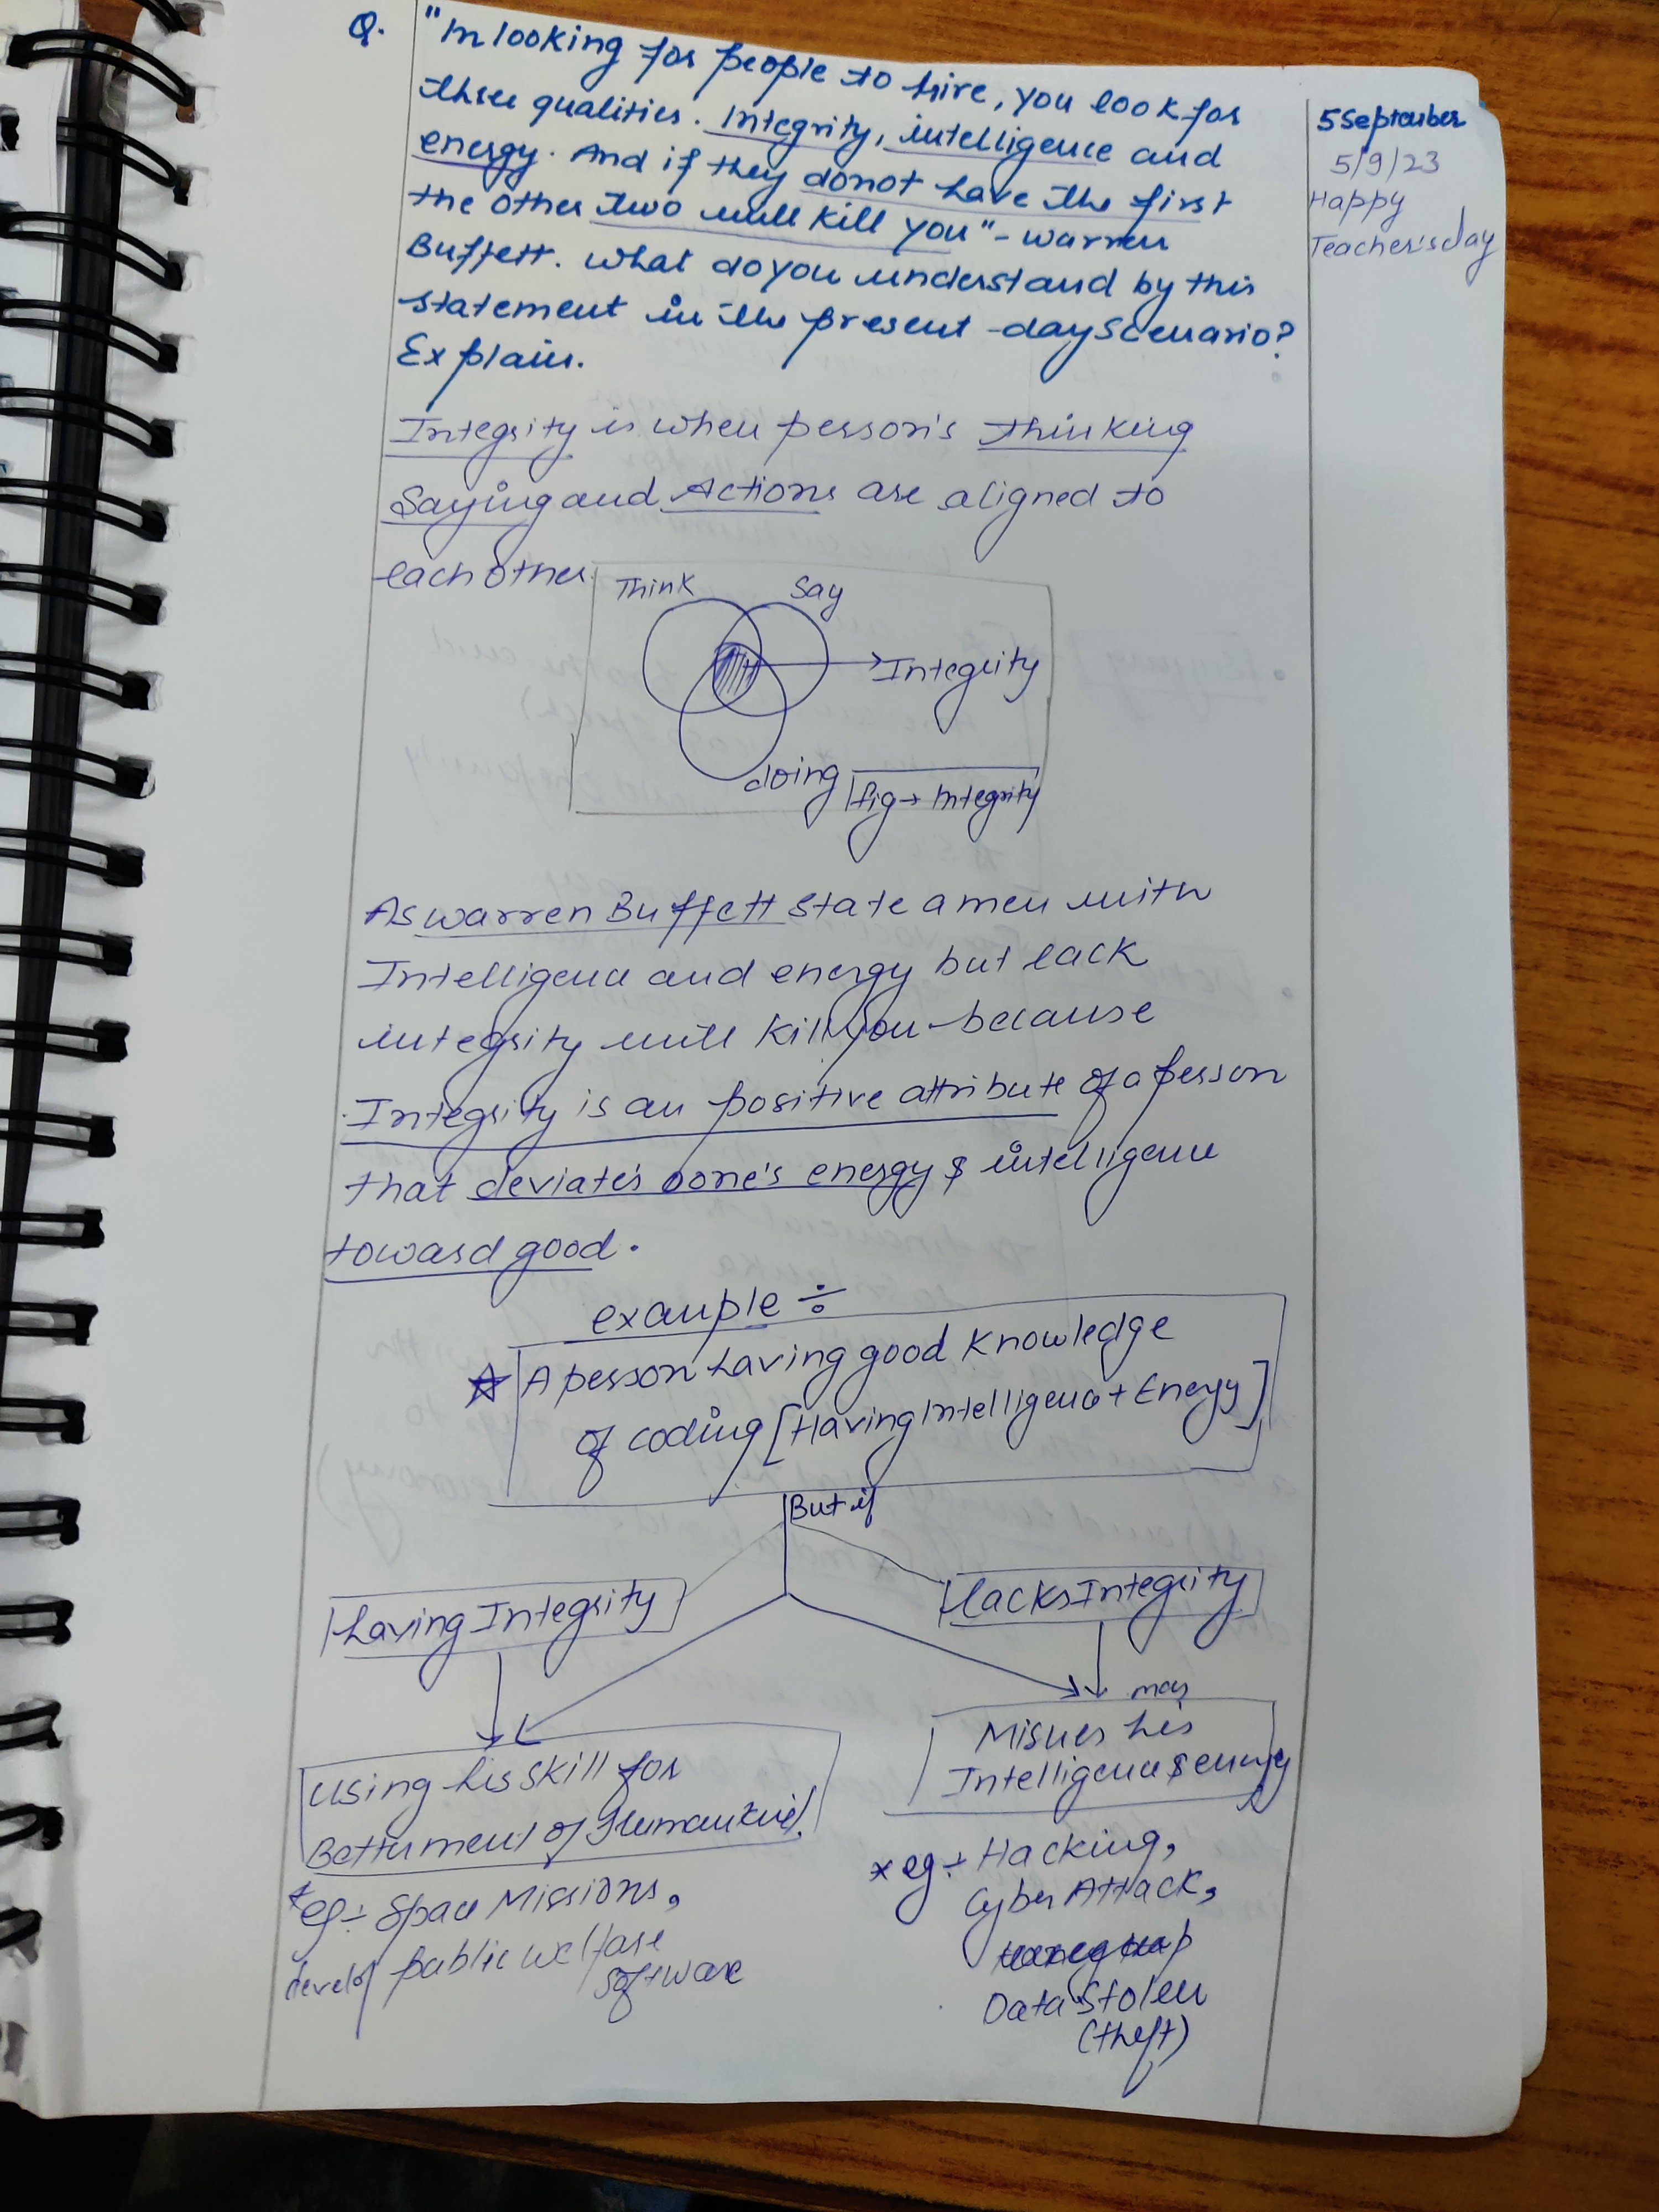 Q. "In looking for people to hire, you look for
three qualities. Integrity, intelligence and
energy. And if they donot have the first
the other two will kill you" - warren
Buffett. What do you understand by this
statement in the present-day scenario?
Explain.
5 September
5/9/23
Happy
Teacher's day
Integrity is when person's thinking
Saying and Actions are aligned to
each other.
Think
Say
Integrity
doing
fig → Integrity
As warren Buffett state a men with
Intelligence and energy but lack
integrity will kill you because
Integrity is an positive attribute of a person
that deviate's one's energy & intelligence
toward good.
example ÷
A person having good knowledge
of coding [Having Intelligence + Energy]
But if
having Integrity
lacks Integrity
may
Misues his
Intelligence & energy
Using his skill for
Betterment of Humankind.
* eg ÷ Hacking,
Cyber Attack,
Data Stolen
(theft)
* eg ÷ Space Missions,
develop public welfare
software